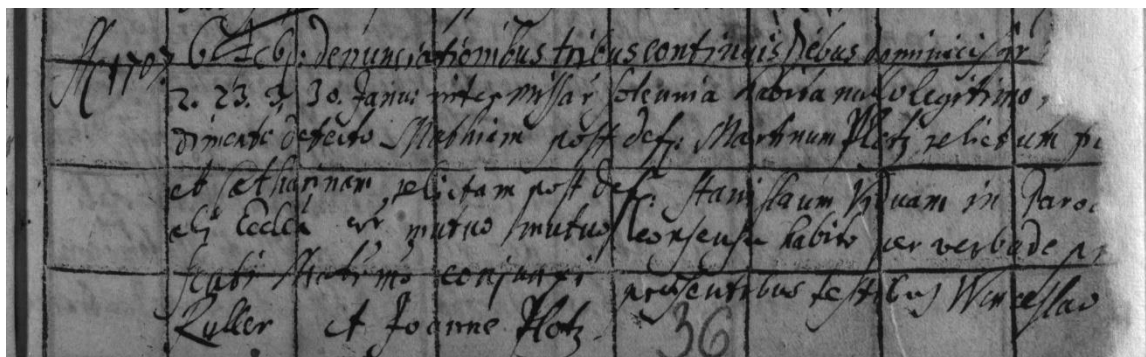 A 1707. 6 Feb: denunciationibus tribus continuis diebus dominicis
2. 23. 3. 30. Janu: inter missar solemnia habita nullo legitimo
dimento detecto Mathiam post def: Martinum Plotz relictum
et Catharinam relictam post def: Stanislaum Viduam in Paroc
Eccla mutuo mutuo consensu habito per verba de
Matrimo conjunxi praesentibus testibus Wenceslao
Ruller et Joanne Plotz.
36